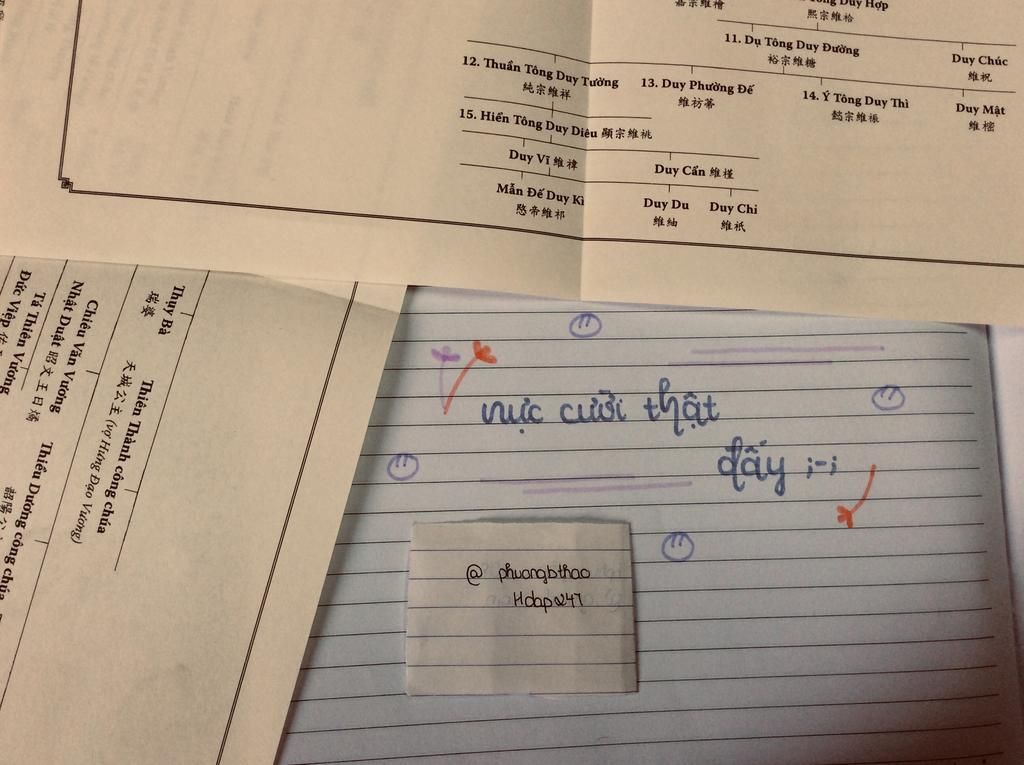 Tông Duy Hợp
嘉宗維禬
熙宗維祫
11. Dụ Tông Duy Đường
裕宗維禟
Duy Chúc
維祝
12. Thuần Tông Duy Tường
純宗維祥
13. Duy Phường Đế
維祊帝
14. Ý Tông Duy Thì
懿宗維祳
Duy Mật
維樒
15. Hiển Tông Duy Diêu 顯宗維祧
Duy Vĩ 維禕
Duy Cẩn 維槿
Mẫn Đế Duy Kì
愍帝維祁
Duy Du
維紬
Duy Chi
維祇
Thụy Bà
瑞婆
Thiên Thành công chúa
天城公主 (vợ Hưng Đạo Vương)
Chiêu Văn Vương
Nhật Duật 昭文王日燏
Tá Thiên Vương
Đức Việp
Thiều Dương công chúa
韶陽公
nực cười thật
đấy ;-;
@ phuongbthao
Hdap247